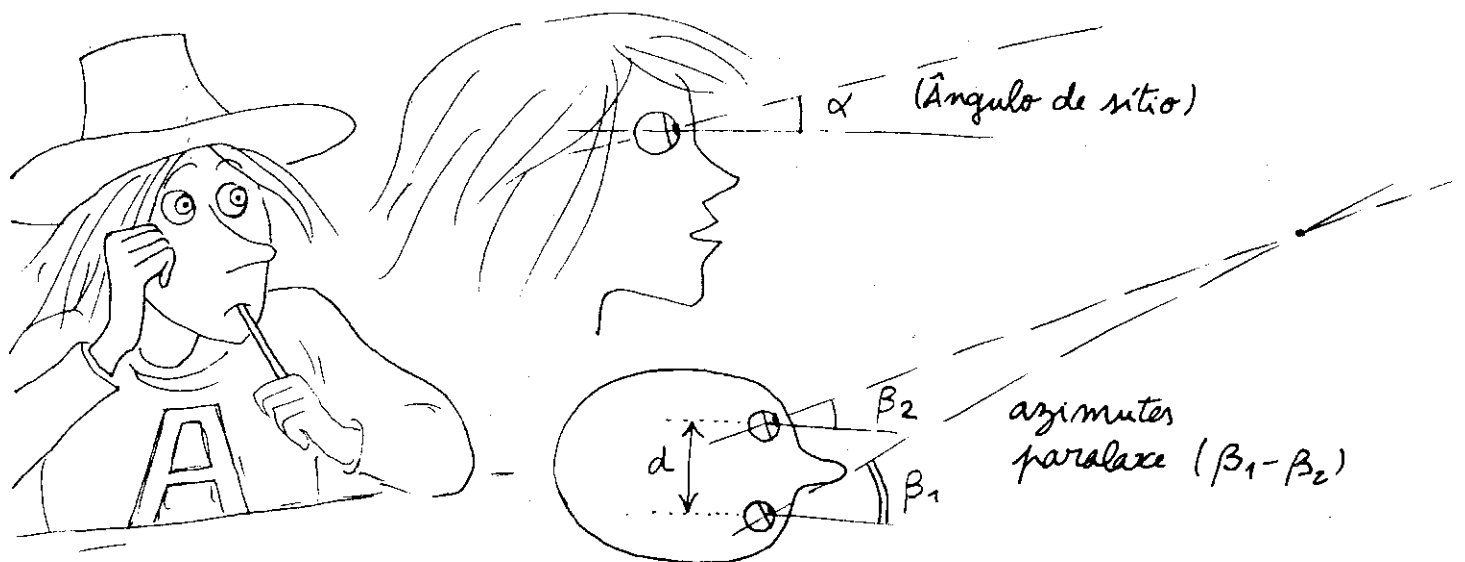 α (Ângulo de sítio)
A
d
β2
β1
azimutes
paralaxe (β1-β2)